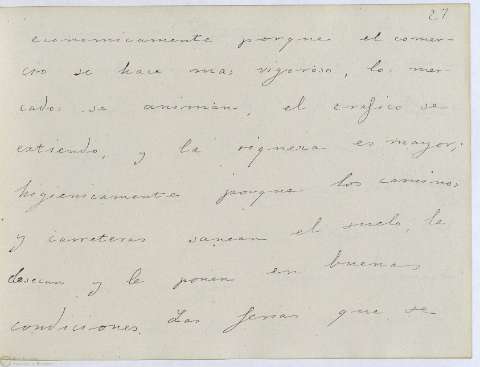 27
economicamente porque el comer-
cio se hace mas vigoroso, los mer-
cados se animan, el trafico se
extiende, y la riqueza es mayor;
higienicamente porque los caminos
y carreteras sanean el suelo, le
desecan y le ponen en buenas
condiciones. Las ferias que se